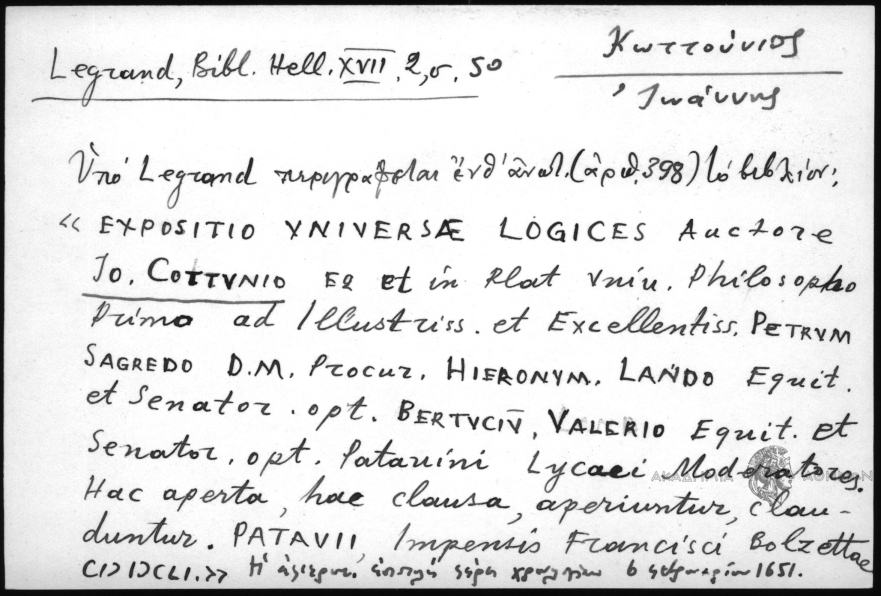 Legrand, Bibl. Hell. XVII, 2, σ. 50
Κωττούνιος
Ἰωάννης
Ὑπὸ Legrand περιγράφεται ἐνθ' ἀνωτ. (ἀριθ. 398) τὸ βιβλίον:
« EXPOSITIO VNIVERSÆ LOGICES Auctore
Io. COTTVNIO EQ et in Plat Vniu. Philosopho
Primo ad Illustriss. et Excellentiss. PETRVM
SAGREDO D.M. Procur. HIERONYM. LANDO Equit.
et Senator. opt. BERTVCIV̄. VALERIO Equit. et
Senator. opt. Patauini Lycaei Moderatores.
ΑΚΑΔΗΜΙΑ ΑΘΗΝΩΝ
Hac aperta, hac clausa, aperiuntur, clau-
duntur. PATAVII, Impensis Francisci Bolzettae
CIↃ IↃCLI. » Ἡ ἀφιερωτ. ἐπιστολὴ φέρει χρονολογίαν 6 1651.